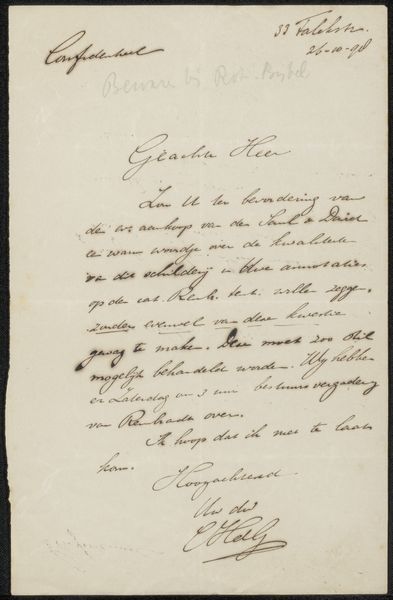 33 Falckstr.
26-10-98
Confidentieel
Bewaren bij
Geachte Heer
Zou U ter bevordering van
den aankoop van den Saul & David
een warm woordje over de kwaliteiten
van dit schilderij in Uwe annotaties
op de cat. Remb. tent. willen zeggen,
zonder evenwel van deze kwestie
gewag te maken. Deze moet zoo stil
mogelijk behandeld worden. Wij hebben
Zaterdag om 3 uur bestuursvergadering
van Rembrandt over.
Ik hoop dat ik niet te laat
kom.
Hoogachtend
Uw dw